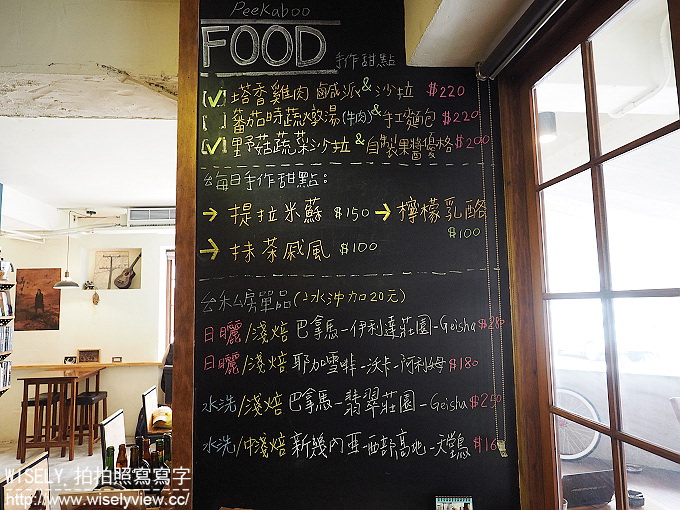 Peekaboo
FOOD 手作甜點
[✓] 塔香雞肉鹹派 & 沙拉 $220
[ ] 蕃茄時蔬燉湯(牛肉) & 手工麵包 $220
[✓] 野菇蔬菜沙拉 & 自製果醬優格 $200
每日手作甜點:
→ 提拉米蘇 $150 → 檸檬乳酪 $100
→ 抹茶戚風 $100
私房單品(冰沖加20元)
日曬/淺焙 巴拿馬-伊利達莊園-Geisha $280
日曬/淺焙 耶加雪啡-沃卡-阿利姆 $180
水洗/淺焙 巴拿馬-翡翠莊園-Geisha $250
水洗/中淺焙 新幾內亞-西部高地-天堂鳥 $16
WISELY 拍拍照寫寫字
http://www.wiselyview.cc/